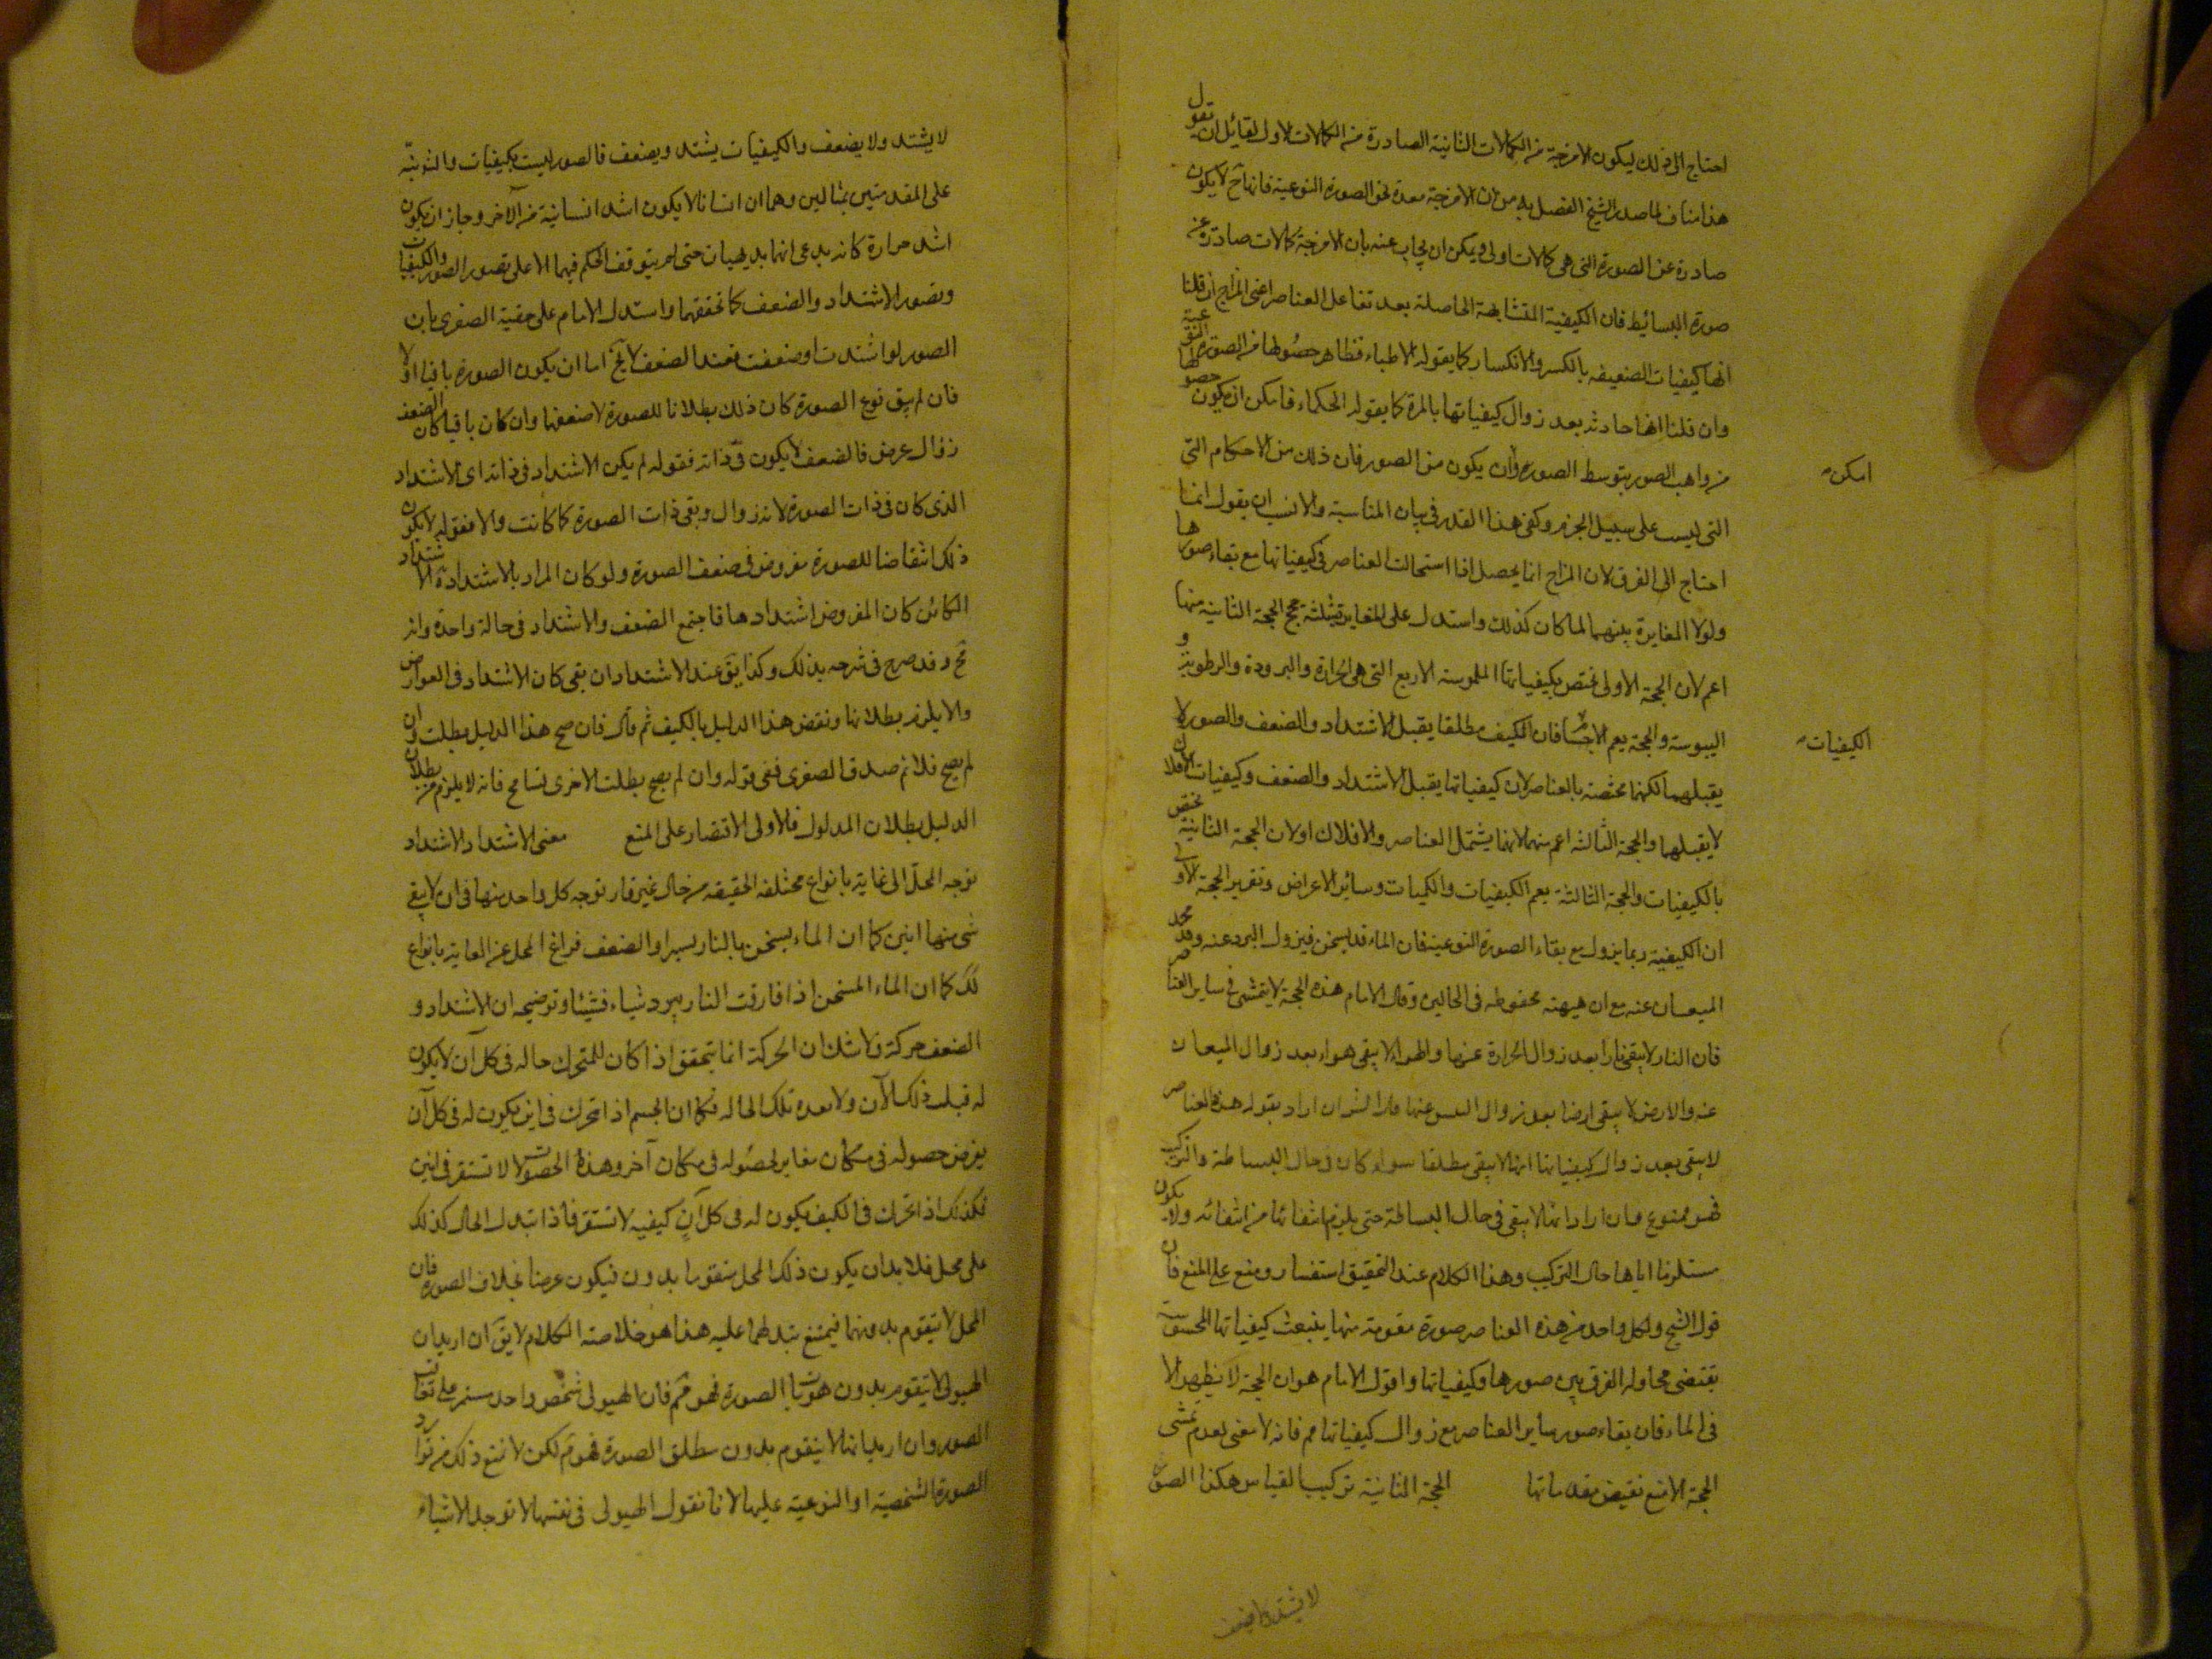 احتاج الى ذلك ليكون الامزجة من الكمالات الثانية الصادرة من الكمالات الاول لقائل ان يقول
هذا مناف لما صدر الشيخ الفصل به من ان الامزجة معدة نحو الصورة النوعية فانها ح لا يكون
صادرة عن الصورة التى هى كمالات اولى ويمكن ان يجاب عنه بان الامزجة كمالات صادرة عن
صورة البسائط فان الكيفية المتشابهة الحاصلة بعد تفاعل العناصر اعنى المزاج ان قلنا
انها كيفيات الضعيفه بالكسر والانكسار كما يقوله الاطباء فظاهر حصولها من الصورة النوعية
وان قلنا انها حادثه بعد زوال كيفياتها بالمرة كما يقوله الحكماء فامكن ان يكون حصولها
من واهب الصور بتوسط الصورة وان يكون من الصور فان ذلك من الاحكام التى
امكن
التى ليست على سبيل الجزم وكفى هذا القدر فى بيان المناسبة والانسب ان يقول انما
احتاج الى الفرق لان المزاج انما يحصل اذا استحالت العناصر فى كيفياتها مع بقاء صورها
ولولا المغايرة بينهما لما كان كذلك واستدل على المغايرة بثلثة حجج الحجة الثانية منها
اعم لان الحجة الاولى تختص بكيفياتها الملموسة الاربع التى هى الحرارة والبرودة والرطوبة و
اليبوسة والحجة يعم الاجسام فان الكيف مطلقا يقبل الاشتداد والضعف والصور لا
الكيفيات
يقبلهما لكنها مختصة بالعناصر لان كيفياتها يقبل الاشتداد والضعف وكيفيات الافلاك
لا يقبلهما والحجة الثالثة اعم منهما لانها يشتمل العناصر والافلاك اولان الحجة الثانية تختص
بالكيفيات والحجة الثالثة يعم الكيفيات والكميات وسائر الاعراض وتقرير الحجة الاولى
ان الكيفية ربما يزول مع بقاء الصورة النوعية فان الماء قد يسخن فيزول البرد عنه وقد يجمد
الميعان عنه مع ان هيهته محفوظه فى الحالين وقال الامام هذه الحجة لا يتمشى فى ساير العناصر
فان النار لا يبقى نارا بعد زوال الحرارة عنها والهواء لا يبقى هواء بعد زوال الميعان
عنه والارض لا يبقى ارضا بعد زوال اليبس عنها قال الش ان اراد بقوله هذه العناصر
لا يبقى بعد زوال كيفياتها انها لا يبقى مطلقا سواء كان فى حال البساطة والتركيب
فهو ممنوع وان اراد انها لا يبقى فى حال البساطة حتى يلزم انتفائها من انتفائه ولا يكون
مستلزما اياها حال التركيب وهذا الكلام عند التحقيق استفسار ومنع على المنع فان
قول الشيخ ولكل واحد من هذه العناصر صورة مقومة منها ينبعث كيفياتها المحسوسة
يقتضى محاولة الفرق بين صورها وكيفياتها واقول الامام هو ان الحجة لا يظهر الا
فى الماء فان بقاء صور سائر العناصر مع زوال كيفياتها مم فانه لا معنى لعدم تمشى
الحجة الا منع نقيض مقدماتها الحجة الثانية تركيب القياس هكذا الصورة
لا يشتد ولا يضعف
لا يشتد ولا يضعف والكيفيات يشتد ويضعف فالصور ليست بكيفيات والتنبيه
على المقدمتين بمثالين وهما ان انسانا لا يكون اشد انسانية من الآخر وجاز ان يكون
اشد حرارة كانه يدعى انها بديهيات حتى لم يتوقف الحكم فيهما الا على تصور الصور والكيفيات
وتصور الاشتداد والضعف كما تحققهما واستدل الامام على حقية الصغرى بان
الصور لو اشتدت او ضعفت فعند الضعف لا يخ اما ان يكون الصورة باقيا اولا
فان لم يبق نوع الصورة كان ذلك بطلانا للصورة لا ضعفها وان كان باقيا كان الضعف
زوال عرض فالضعف لا يكون فى ذاته فقوله لم يكن الاشتداد فى ذاته اى الاشتداد
الذى كان فى ذات الصورة لانه زوال وبقى ذات الصورة كما كانت والا فقوله لا يكون
ذلك انتقاضا للصورة مفروض فى ضعف الصورة ولو كان المراد بالاشتداد الاشتداد
الكائن كان المفروض اشتدادها فاجتمع الضعف والاشتداد فى حالة واحدة وانه
مح وقد صرح فى شرحه بذلك وكذا يق عند الاشتداد ان بقى كان الاشتداد فى العوارض
والا يلزم بطلانها ونقض هذا الدليل بالكيف ثم قال فان صح هذا الدليل بطلت وان
لم يصح فلا نم صدق الصغرى ففى قوله وان لم يصح بطلت الاخرى تسامح فانه لا يلزم من بطلان
الدليل بطلان المدلول فالاولى الاقتصار على المنع معنى الاشتداد الاشتداد
توجه المحل الى غاية بانواع مختلفة الحقيقة من حال غير قار توجه كل واحد منها فى ان لا يبقى
شى منها انين كما ان الماء يسخن بالنار يسيرا والضعف فراغ المحل عن الغاية بانواع
كك كما ان الماء المسخن اذا فارقت النار يبرد شياء فشيئا وتوضيحه ان الاشتداد و
الضعف حركة ولا شك ان الحركة انما يتحقق اذا كان للمتحرك حاله فى كل آن لا يكون
له قبل ذلك الآن ولا بعده تلك الحاله فكما ان الجسم اذا تحرك فى اين يكون له فى كل آن
يفرض حصوله فى مكان مغاير لحصوله فى مكان آخر وهذه الحصولات لا تستقر فى انين
فكذلك اذا تحرك فى الكيف يكون له فى كل آن كيفيه لا تستقر فاذا تبدل الحال كذلك
على محل فلا بد ان يكون ذلك المحل متقوما بدون فيكون عرضا بخلاف الصورة فان
المحل لا يتقوم بدونها فيمتنع تبدلها عليه هذا هو خلاصة الكلام لا يق ان اريد ان
الهيولى لا يتقوم بدون هويات الصورة فهو مم فان الهيولى شخص واحد مستمر على
الصور وان اريد انها لا يتقوم بدون مطلق الصورة فهو مم لكن لا نمنع ذلك من توارد
الصورة الشخصية او النوعية عليها لانا نقول الهيولى فى نفسها لا توجد الاشياء